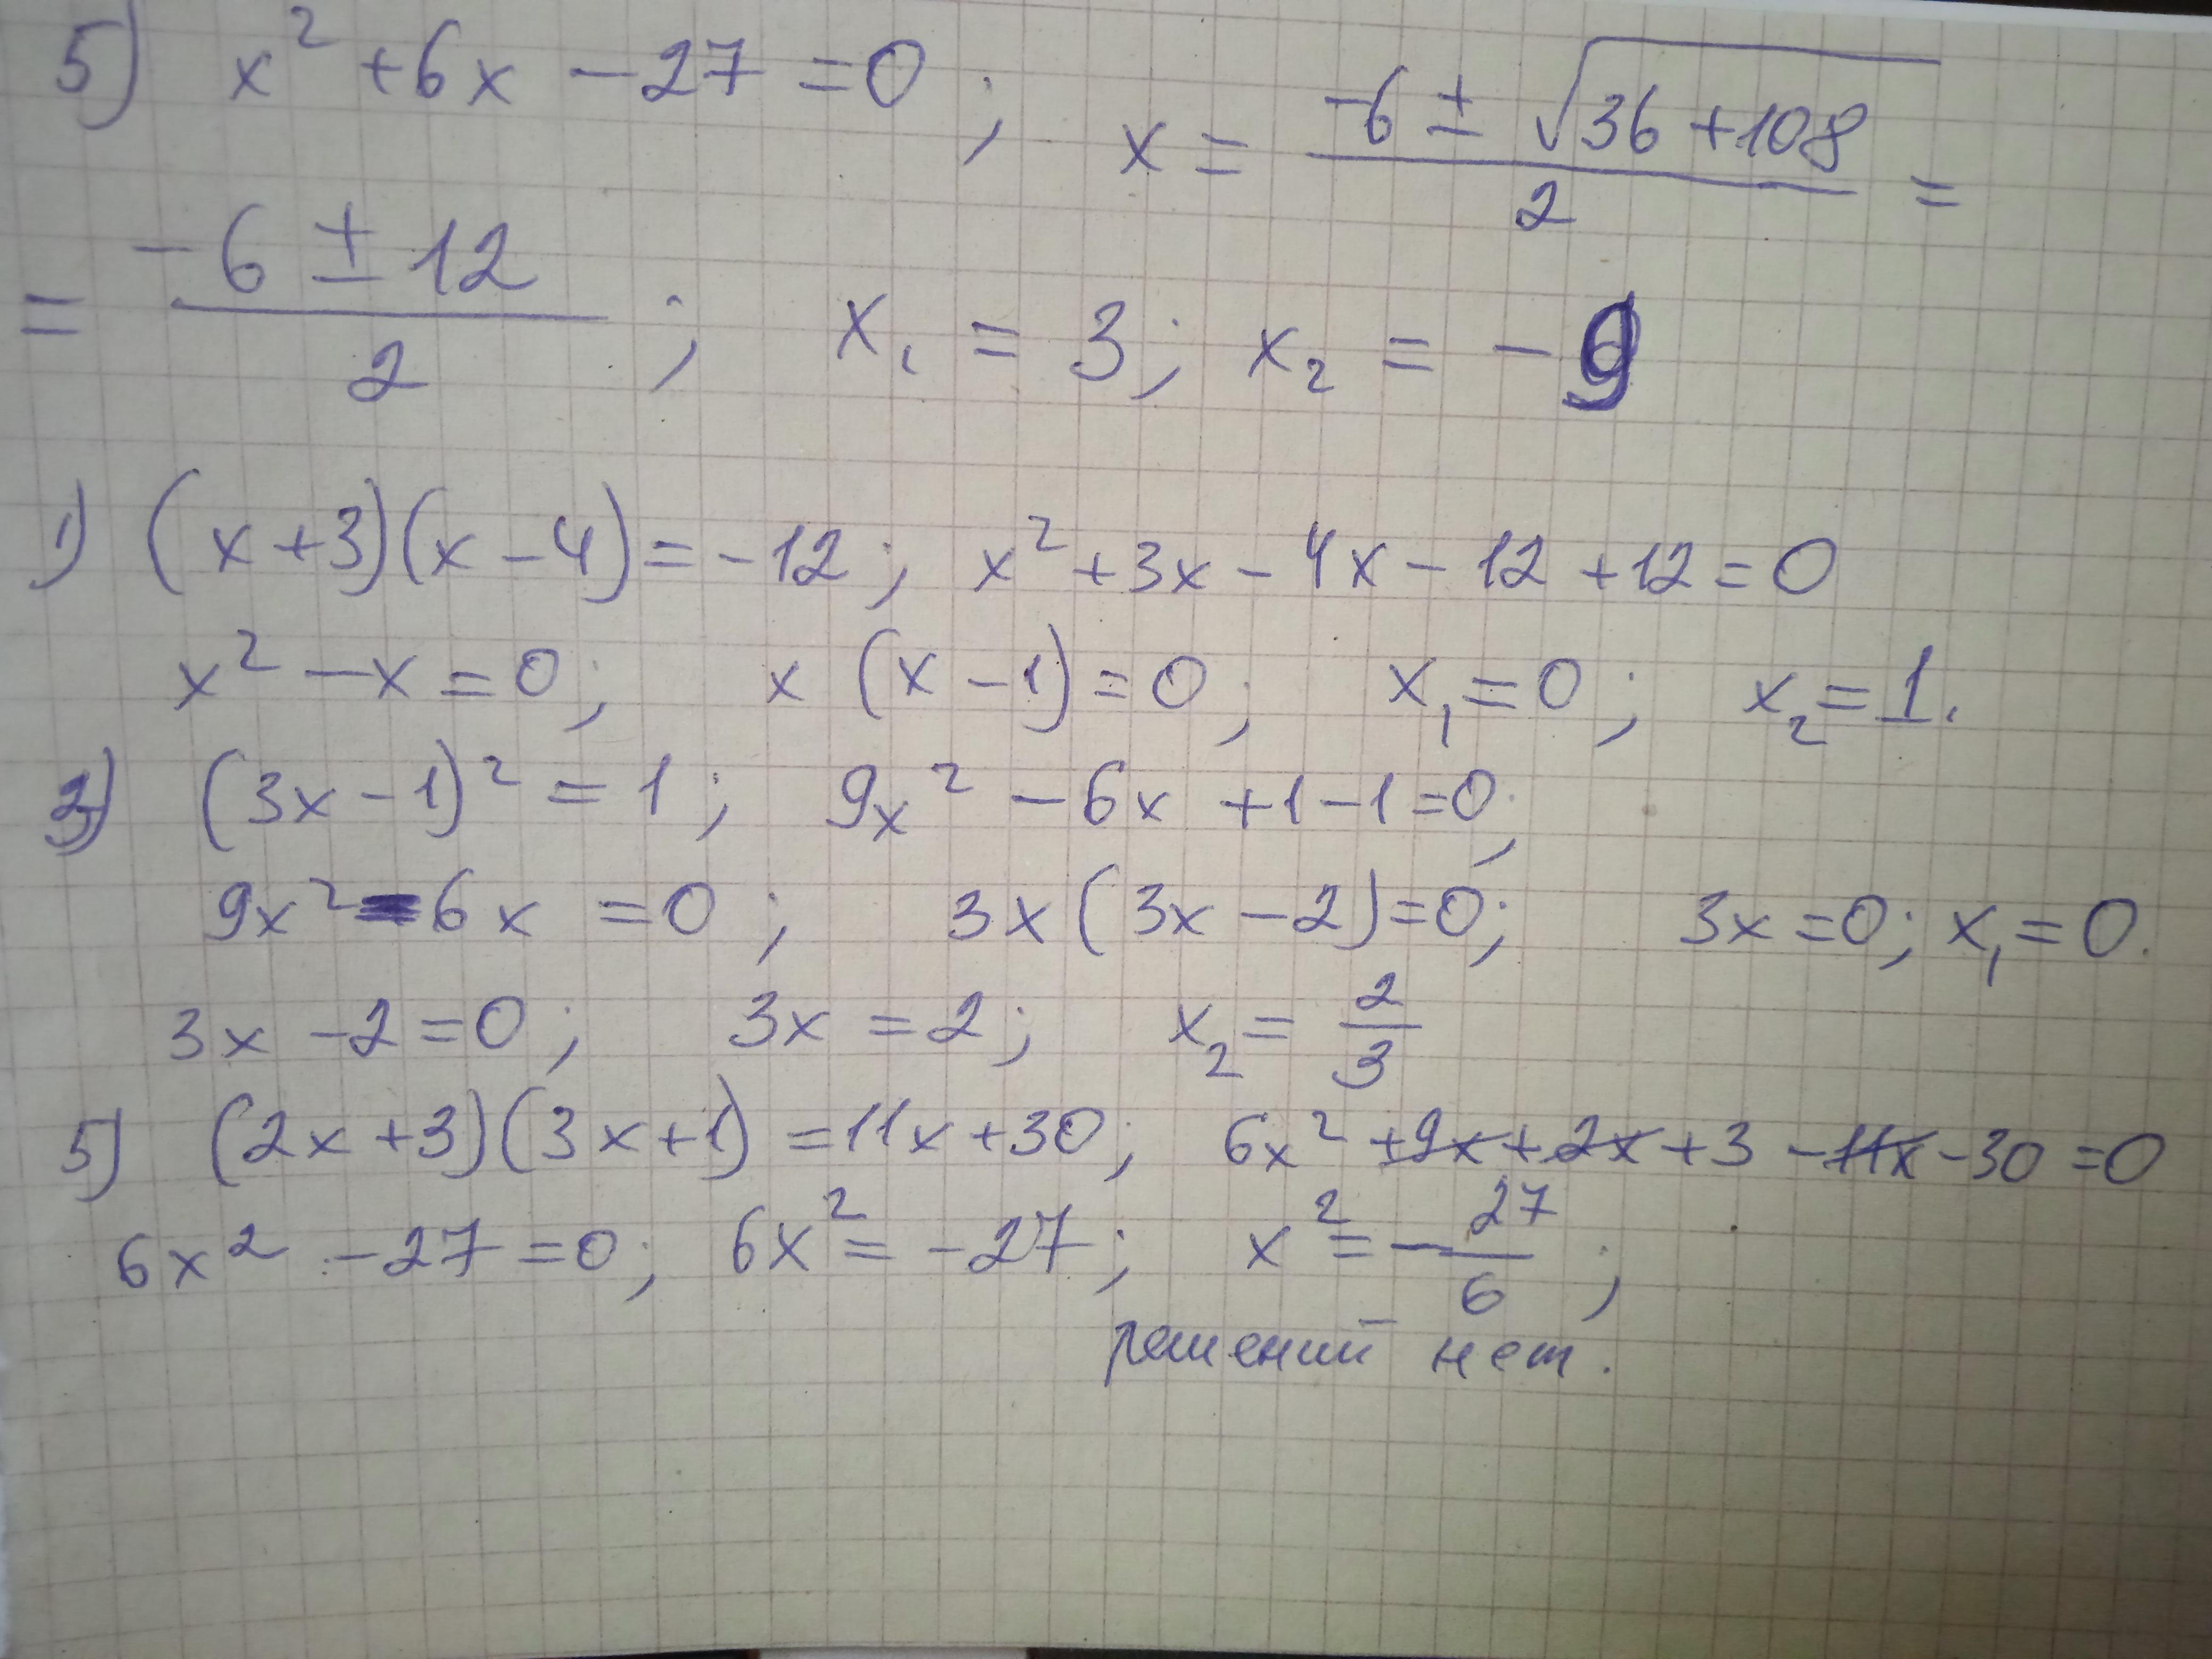 5) x² + 6x - 27 = 0; x = (-6 ± √(36 + 108))/2 =
= (-6 ± 12)/2; x₁ = 3; x₂ = -9
1) (x + 3)(x - 4) = -12; x² + 3x - 4x - 12 + 12 = 0
x² - x = 0; x (x - 1) = 0; x₁ = 0; x₂ = 1.
2) (3x - 1)² = 1; 9x² - 6x + 1 - 1 = 0;
9x² - 6x = 0; 3x (3x - 2) = 0; 3x = 0; x₁ = 0.
3x - 2 = 0; 3x = 2; x₂ = 2/3
5) (2x + 3)(3x + 1) = 11x + 30; 6x² + 9x + 2x + 3 - 11x - 30 = 0
6x² - 27 = 0; 6x² = -27; x² = -27/6;
решений нет.